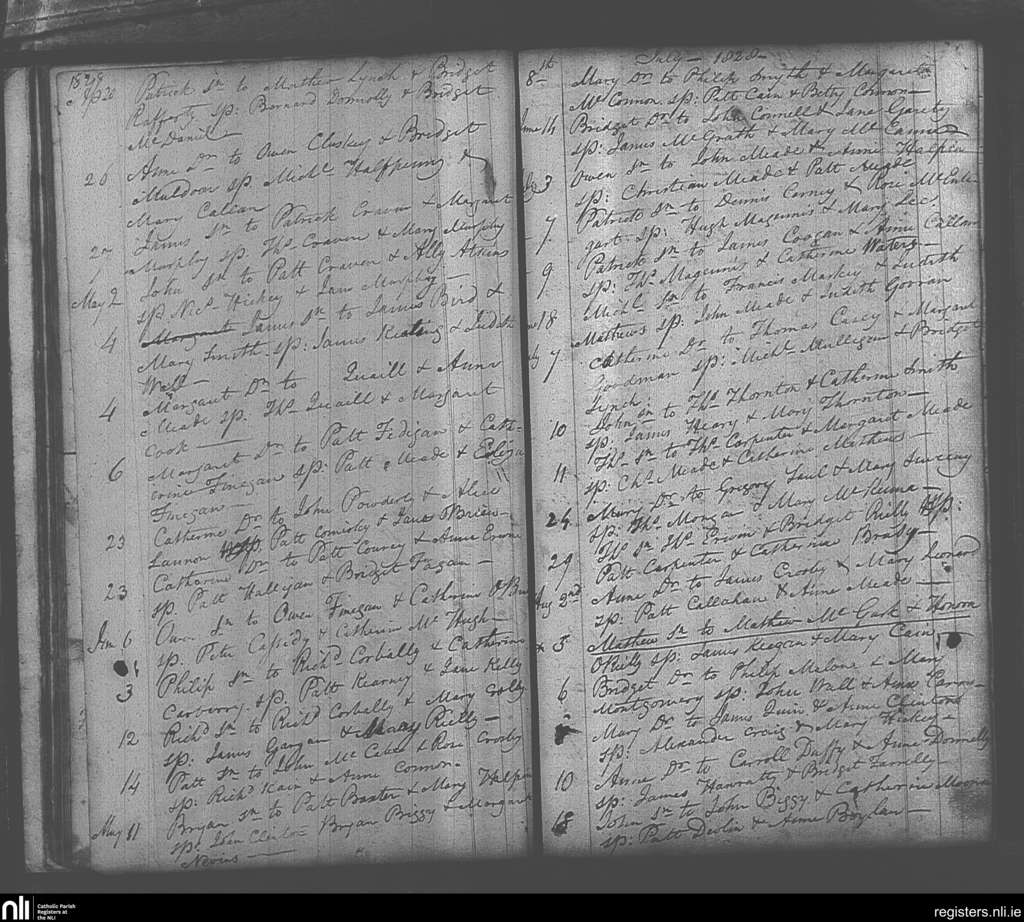 1828
Ap 20 Patrick Sn to Mathew Lynch & Bridget
Rafferty Sp: Bernard Donnolly & Bridget
McDaniel
20 Anne Dr to Owen Cluskey & Bridget
Muldoon Sp Michl Halfpenny &
Mary Callan
27 James Sn to Patrick Craven & Margaret
Murphy Sp Ths Craven & Mary Murphy
May 2 John Sn to Patt Craven & Ally Atkins
Sp Nics Hickey & Jane Murphy
4 Margaret James Sn to James Bird &
Mary Smith Sp: James Keating & Judith
Wall
4 Margaret Dr to Quaill & Anne
Meade Sp. Ths Quaill & Margaret
Cook
6 Margaret Dr to Patt Fedigan & Cath-
erine Finegan Sp: Patt Meade & Eliza
Finegan
23 Catherine Dr to John Powderly & Alice
Lannon Sp. Patt Comisky & Jane OBrien
23 Catherine Dr to Patt Courcy & Anne
Sp. Patt Halligan & Bridget Fagan
Jun 6 Owen Sn to Owen Finegan & Catherine
Sp: Peter Cassidy & Catherine Mc Hugh
3 Philip Sn to Richd Corbally & Catherine
Carberry. Sp. Patt Kearney & Jane Kelly
12 Richd Sn to Richd Corbally & Mary
Sp: James Gargan & Mary Reilly
14 Patt Sn to John Mc Cabe & Rose Crosby
Sp: Richd Kain & Anne Connon
May 11 Bryan Sn to Patt Baxter & Mary Halpin
Sp: John Clinton Bryan Briggy & Margaret
Nevins
July 1828
8th Mary Dr to Philip Smyth & Margaret
Mc Connon Sp: Patt Cain & Betty Connon
June 14 Bridget Dr to John Connell & Jane Garety
Sp: James McGrath & Mary Mc
3 Owen Sn to John Meade & Anne Halpin
Sp: Christian Meade & Patt Meade
7 Patrick Sn to Dennis Carney & Rose McEnte-
gart Sp: Hugh Magennis & Mary Lee
9 Patrick Sn to James Coogan & Anne Callan
Sp: Ths Magennis & Catherine Waters
18 Michl Sn to Francis Markey & Judith
Mathews Sp: John Meade & Judith Gorran
7 Catherine Dr to Thomas Casey & Margaret
Goodman Sp: Michl Mulligan & Bridget
Lynch
10 John Sn to Ths Thornton & Catherine Smith
Sp: James Heary & Mary Thornton
11 Ths Sn to Ths Carpenter & Margaret Meade
Sp: Chs Meade & Catherine Mathews
24 Mary Dr to Gregory Saul & Mary Sweeny
Sp: Ths Morgan & Mary Mc
29 Ths Sn Ths Erwin & Bridget Reilly Sp:
Patt Carpenter & Catherine Brady
Aug 2nd Anne Dr to James Crosby & Mary Leonard
Sp. Patt Callahan & Anne Meade
5 Mathew Sn to Mathew Mc Gurk & Honora
OReilly Sp: James Keogan & Mary Cain
6 Bridget Dr to Philip Malone & Mary
Montgomery Sp: John Wall & Anne
Mary Dr to James Quin & Anne Clinton
Sp: Alexander Craig & Mary Hickey
10 Anne Dr to Carroll Duffy & Anne Donnelly
Sp: James Hanratty & Bridget Farrelly
18 John Sn to John Biggy & Catherine
Sp: Patt Devlin & Anne Boylan
nli Catholic Parish Registers at the NLI
registers.nli.ie